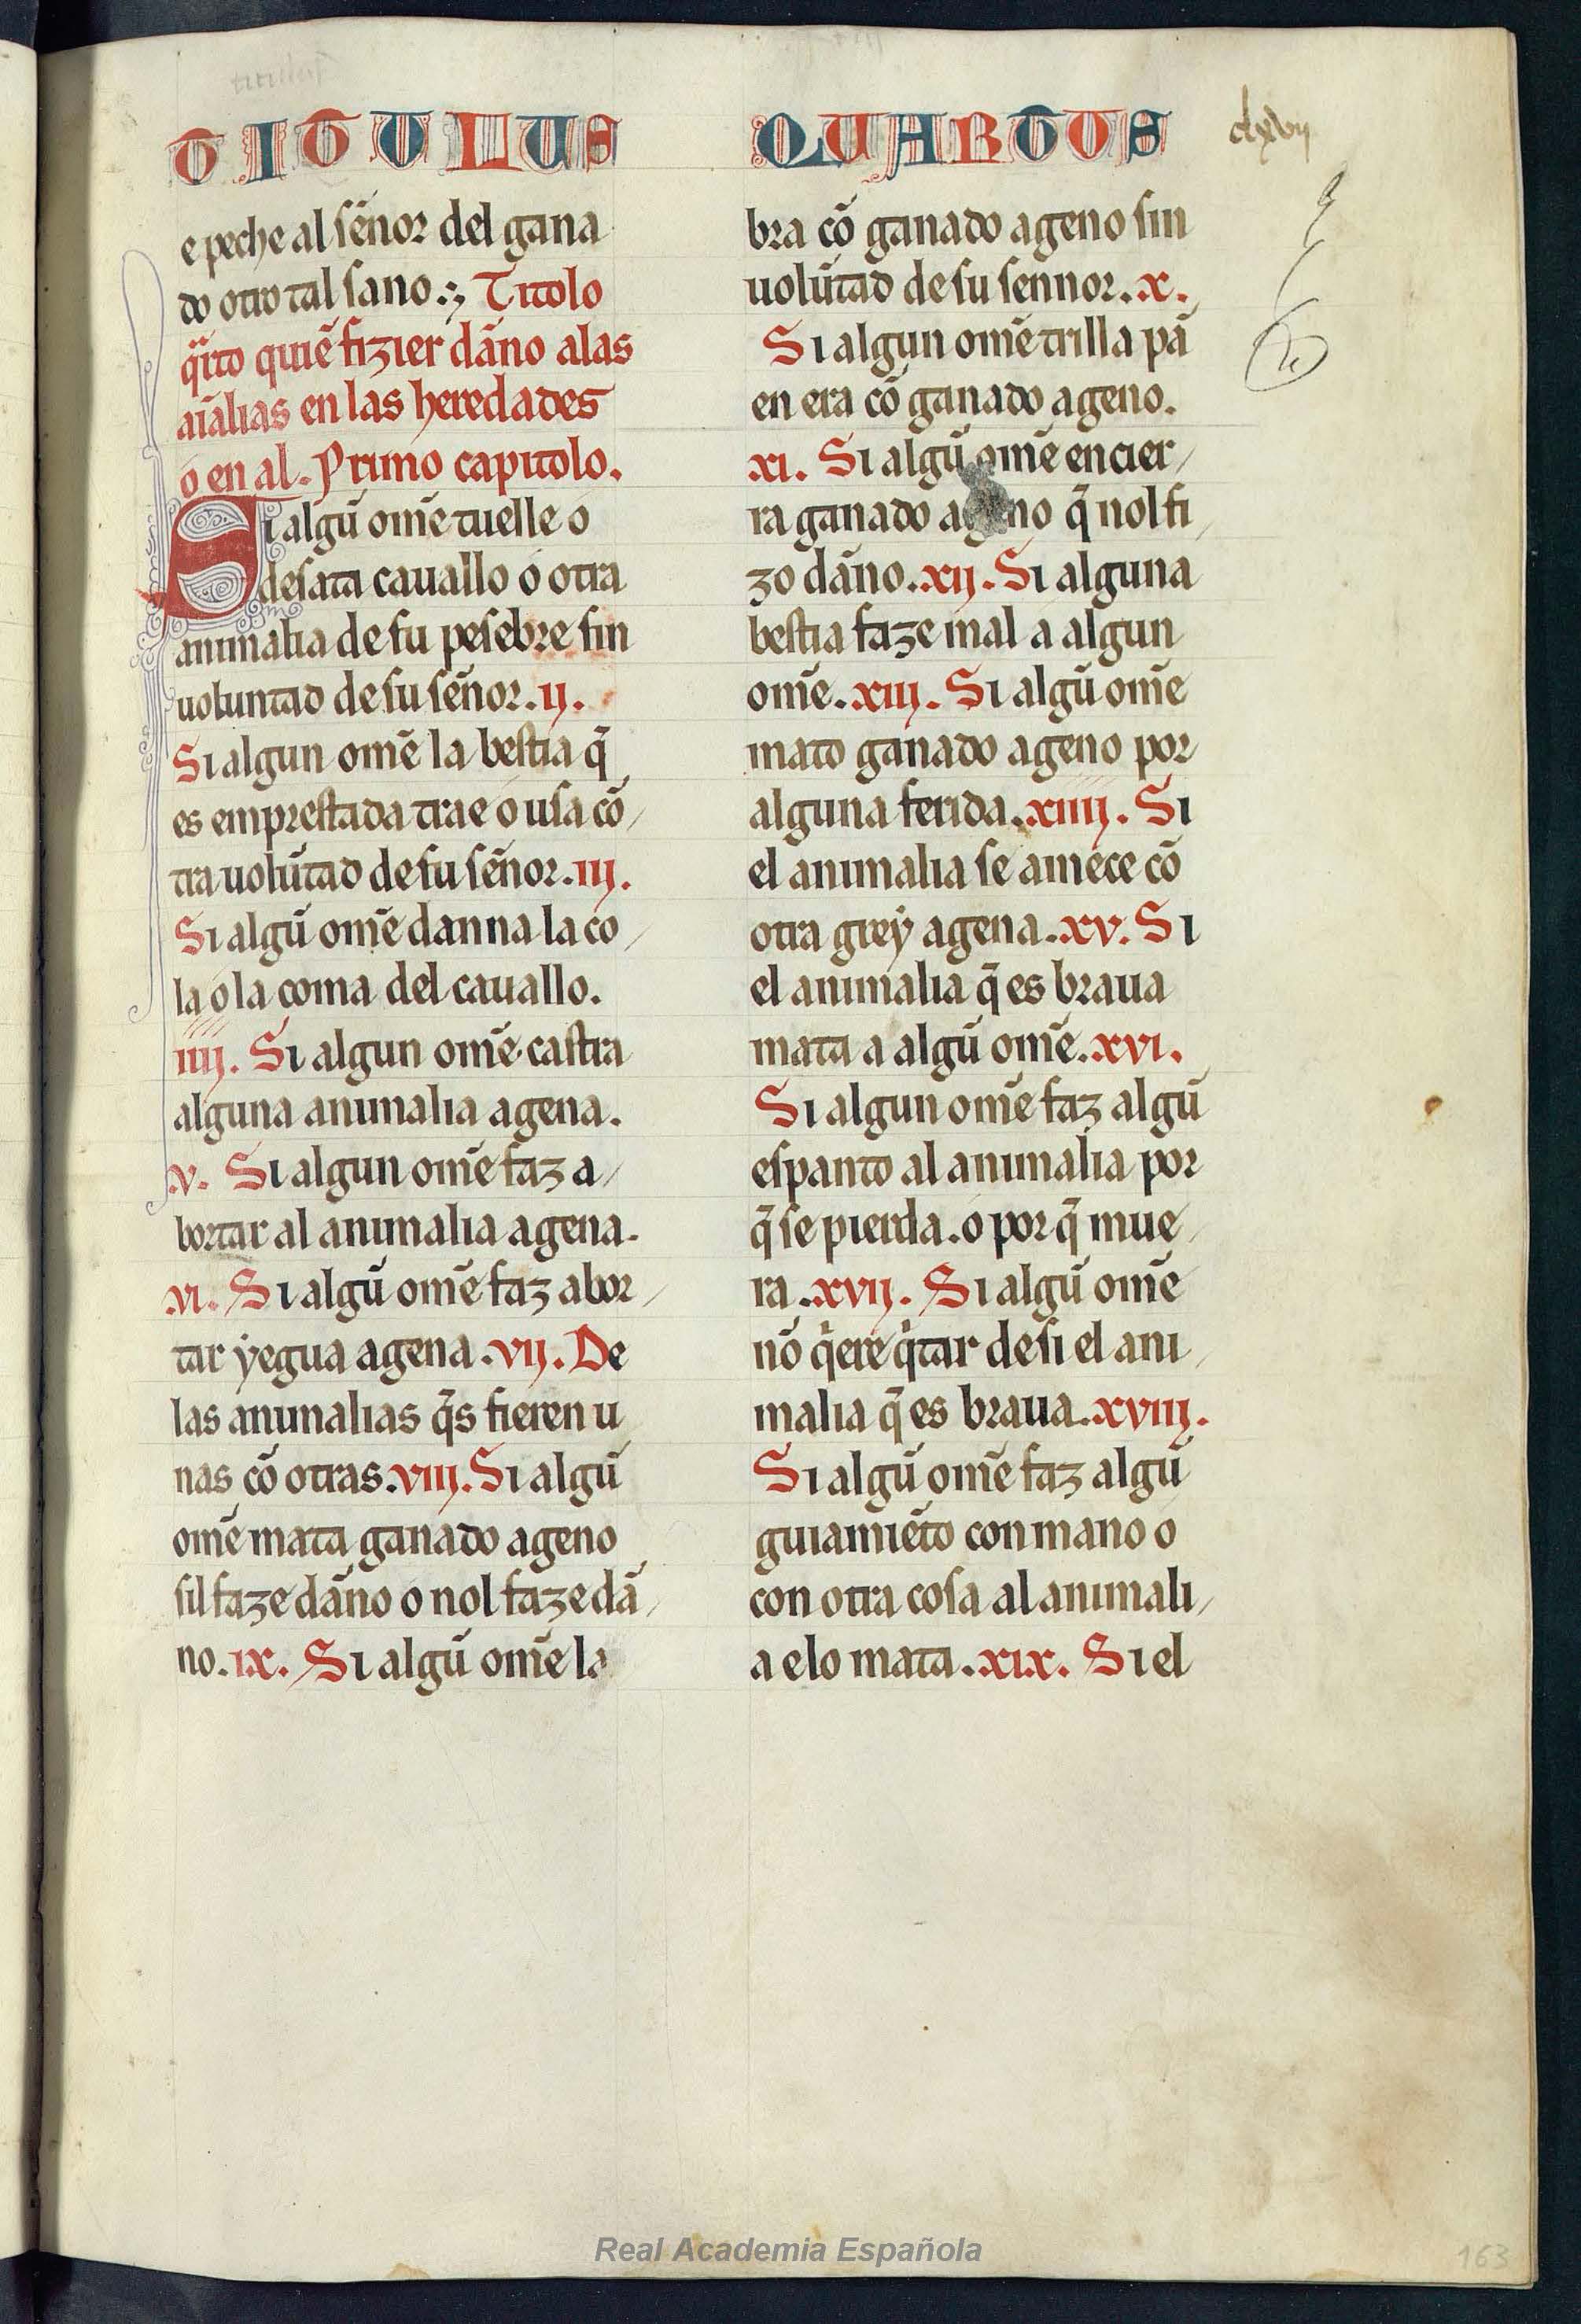 TITULUS QUARTUS
clxvij
e peche al sẽnor del gana
do otro tal sano. Titolo
q̈rto quiẽ fizier dãno alas
aĩalias en las heredades
o en al. Primo capitolo.
Si algũ omẽ tuelle o
desata cauallo o otra
animalia de su pesebre sin
uoluntad de su sẽnor. ij.
Si algun omẽ la bestia q̃
es emprestada trae o usa cõ/
tra uolũtad de su sẽnor. iij.
Si algũ omẽ danna la co/
la o la coma del cauallo.
iiij. Si algun omẽ castra
alguna animalia agena.
v. Si algun omẽ faz a/
bortar al animalia agena.
vi. Si algũ omẽ faz abor/
tar yegua agena. vij. De
las animalias q̃s fieren u
nas cõ otras. viij. Si algũ
omẽ mata ganado ageno
sil faze dãno o nol faze dã/
no. ix. Si algũ omẽ la
bra cõ ganado ageno sin
uolũtad de su sennor. x.
Si algun omẽ trilla pã
en era cõ ganado ageno.
xi. Si algũ omẽ encier/
ra ganado ageno q̃ nol fi/
zo dãno. xij. Si alguna
bestia faze mal a algun
omẽ. xiij. Si algũ omẽ
mato ganado ageno por
alguna ferida. xiiij. Si
el animalia se amece cõ
otra grey agena. xv. Si
el animalia q̃ es braua
mata a algũ omẽ. xvi.
Si algun omẽ faz algũ
espanto al animalia por
q̃ se pierda. o por q̃ mue/
ra. xvij. Si algũ omẽ
nõ q̇ere q̇tar de si el ani/
malia q̃ es braua. xviij.
Si algũ omẽ faz algũ
guiamiẽto con mano o
con otra cosa al animali/
a e lo mata. xix. Si el
Real Academia Española
163